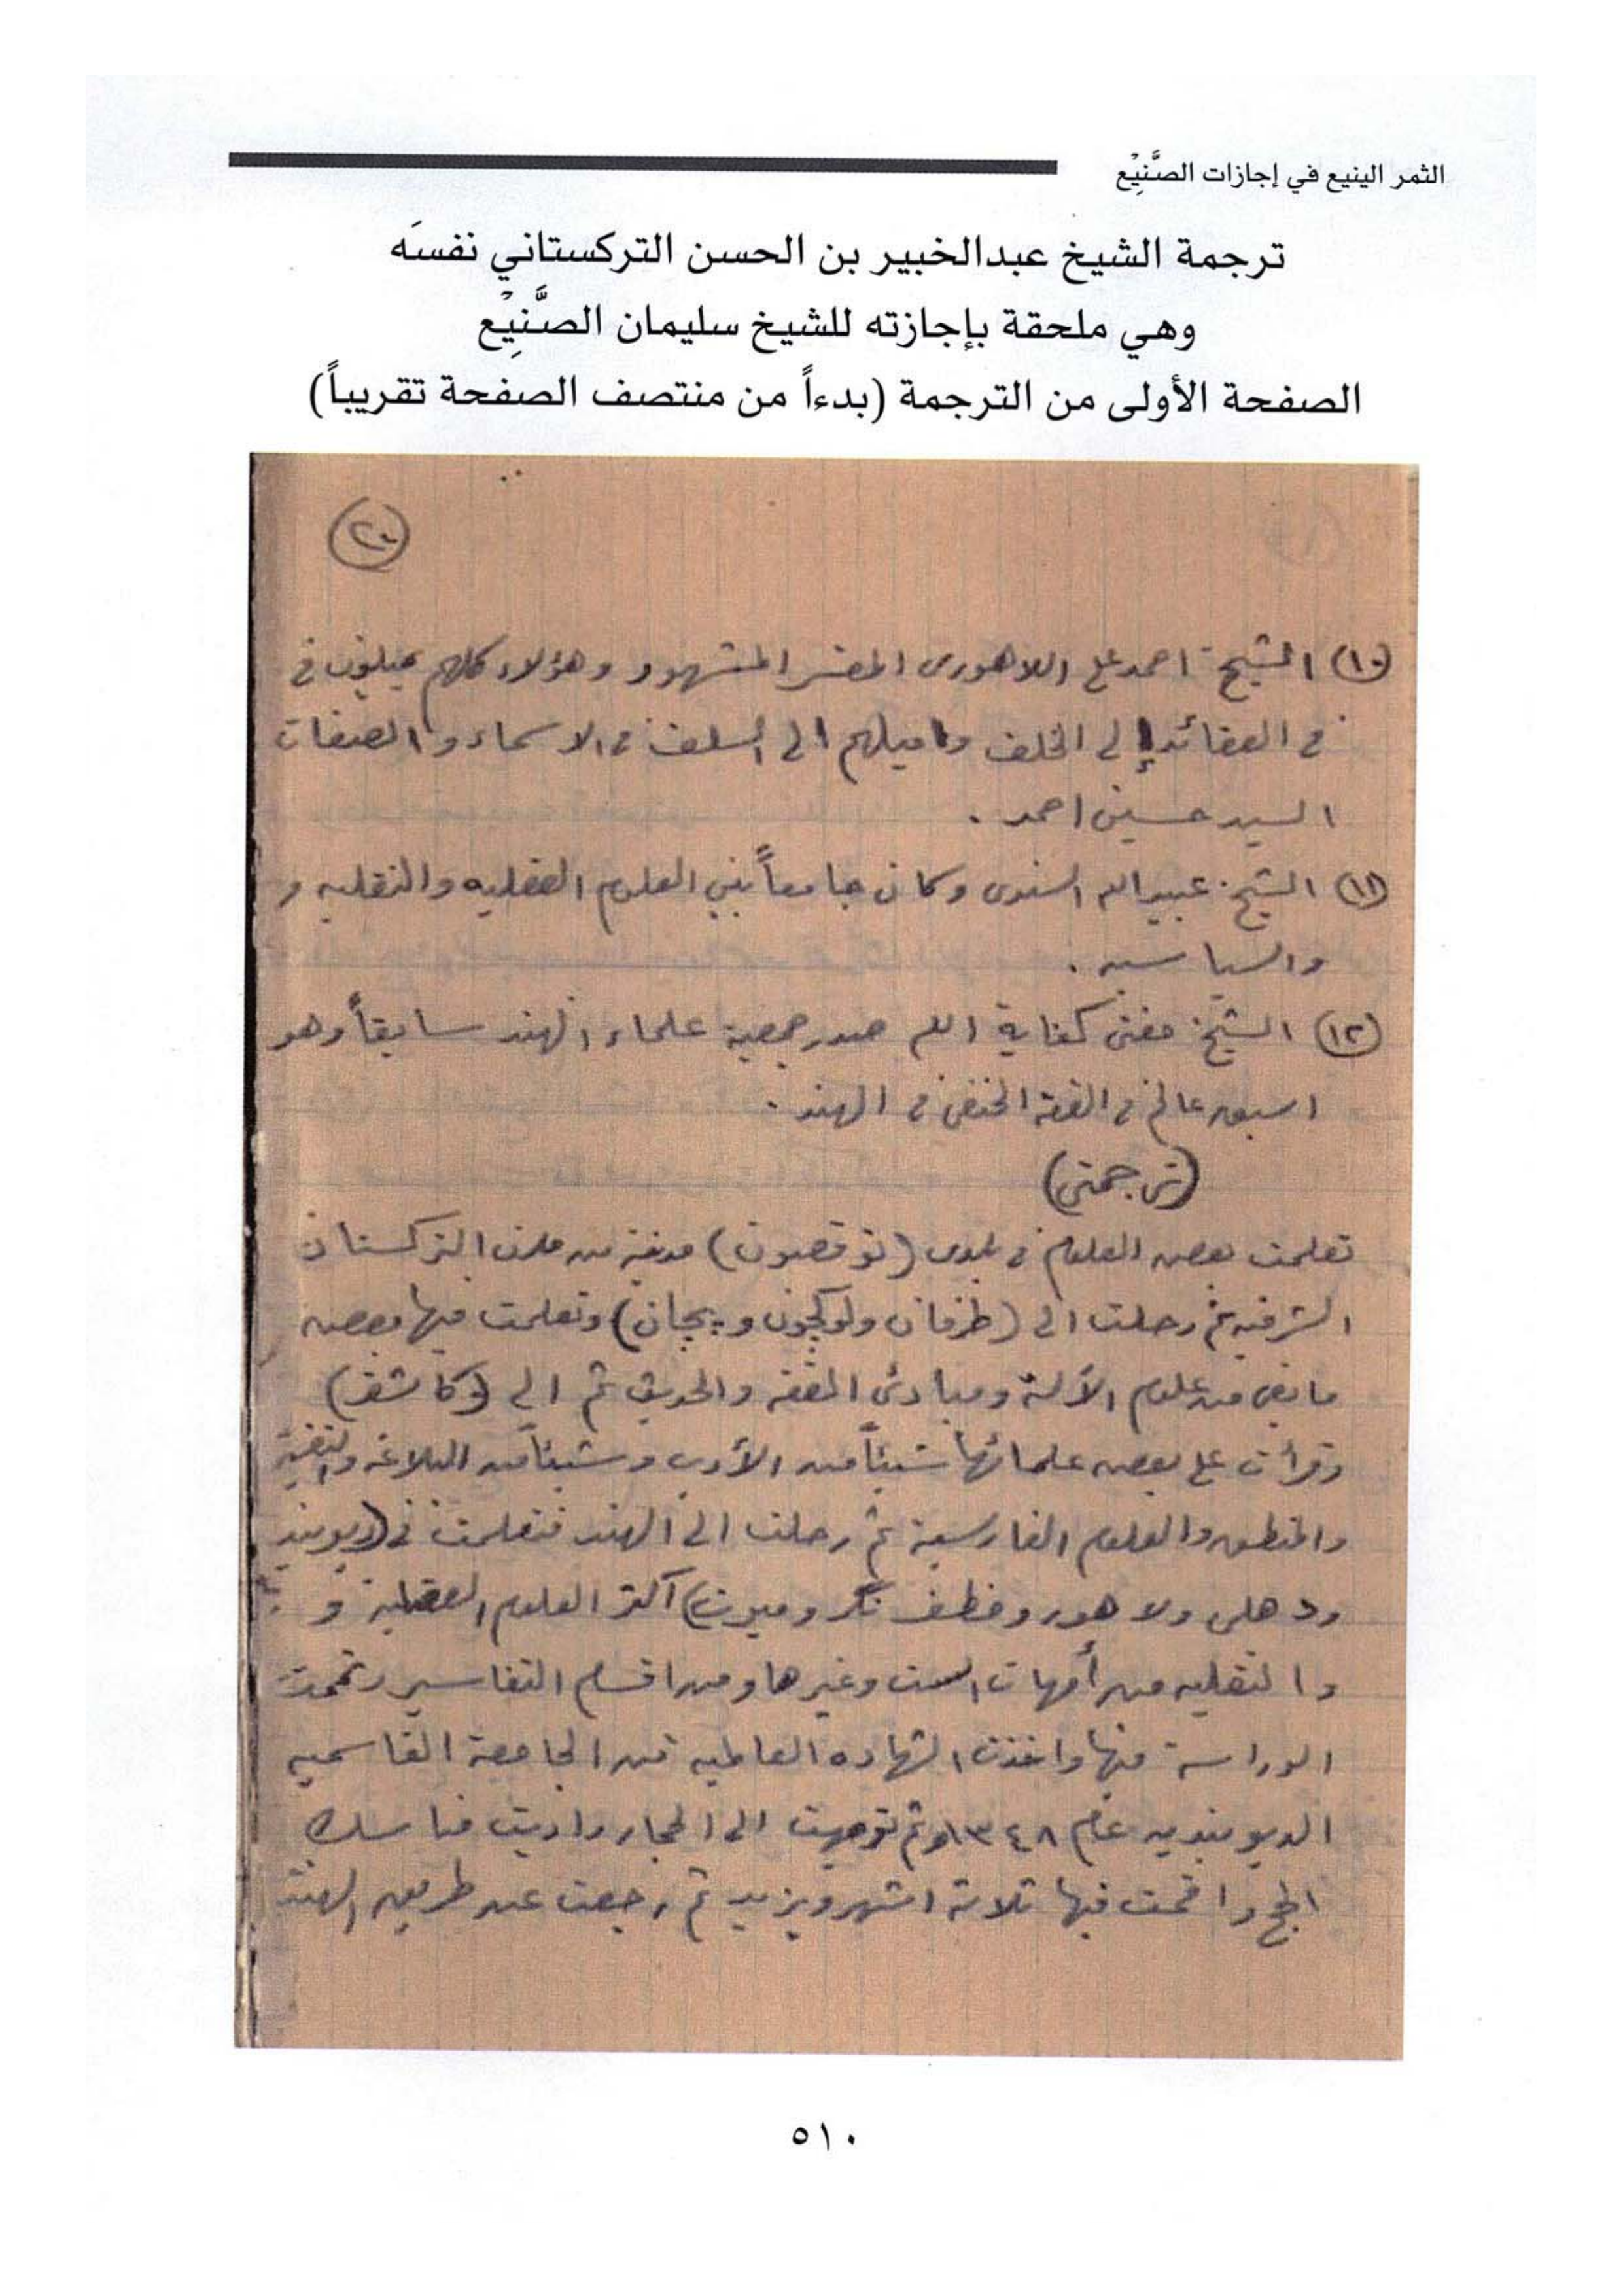 الثمر الينيع في إجازات الصَّنِيْع
ترجمة الشيخ عبدالخبير بن الحسن التركستاني نفسَه
وهي ملحقة بإجازته للشيخ سليمان الصَّنِيْع
الصفحة الأولى من الترجمة (بدءاً من منتصف الصفحة تقريباً)
(٢٠)
(١٠) الشيخ احمد علي اللاهوري المفسر المشهور وهؤلاء كلهم يميلون في
في العقائد إلى الخلف واميلهم الى السلف في الاسماء والصفات
السيد حسين احمد .
(١١) الشيخ عبيد الله السندي وكان جامعاً بين العلوم العقليه والنقليه و
والسياسيه .
(١٢) الشيخ مفتي كفاية الله صدر جمعية علماء الهند سابقاً وهو
اسبق عالم في الفقه الحنفي في الهند .
(ترجمتي)
تعلمت بعض العلوم في بلدي (توقصون) مدينة من مدن التركستان
الشرقيه ثم رحلت الى (طرفان ولوكجون و پجان) وتعلمت فيها بعض
ما بقي من علوم الآلة ومبادئ الفقه والحديث ثم الى (كاشغر)
وقرأت على بعض علمائها شيئاً من الأدب وشيئاً من البلاغه والتفسير
والمنطق والعلوم الفارسية ثم رحلت الى الهند فتعلمت في (ديوبند
ودهلي ولاهور و نگر وميرت) اكثر العلوم العقلية و
والنقليه من أمهات الست وغيرها ومن اقسام التفاسير وتممت
الدراسة فيها واخذت الشهاده العالميه من الجامعة القاسميه
الديوبنديه عام ١٣٤٨ ثم توجهت الى الحجاز واديت مناسك
الحج واقمت فيها ثلاثة اشهر ويزيد ثم رجعت عن طريق الهند
٥١٠